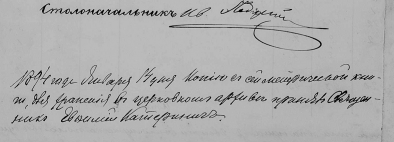 Столоначальникъ Ив. 
1894 года Января 14 дня копію съ сей метрической кни-
ги, для храненія въ церковномъ архивѣ принялъ Священ-
никъ Евѳимій